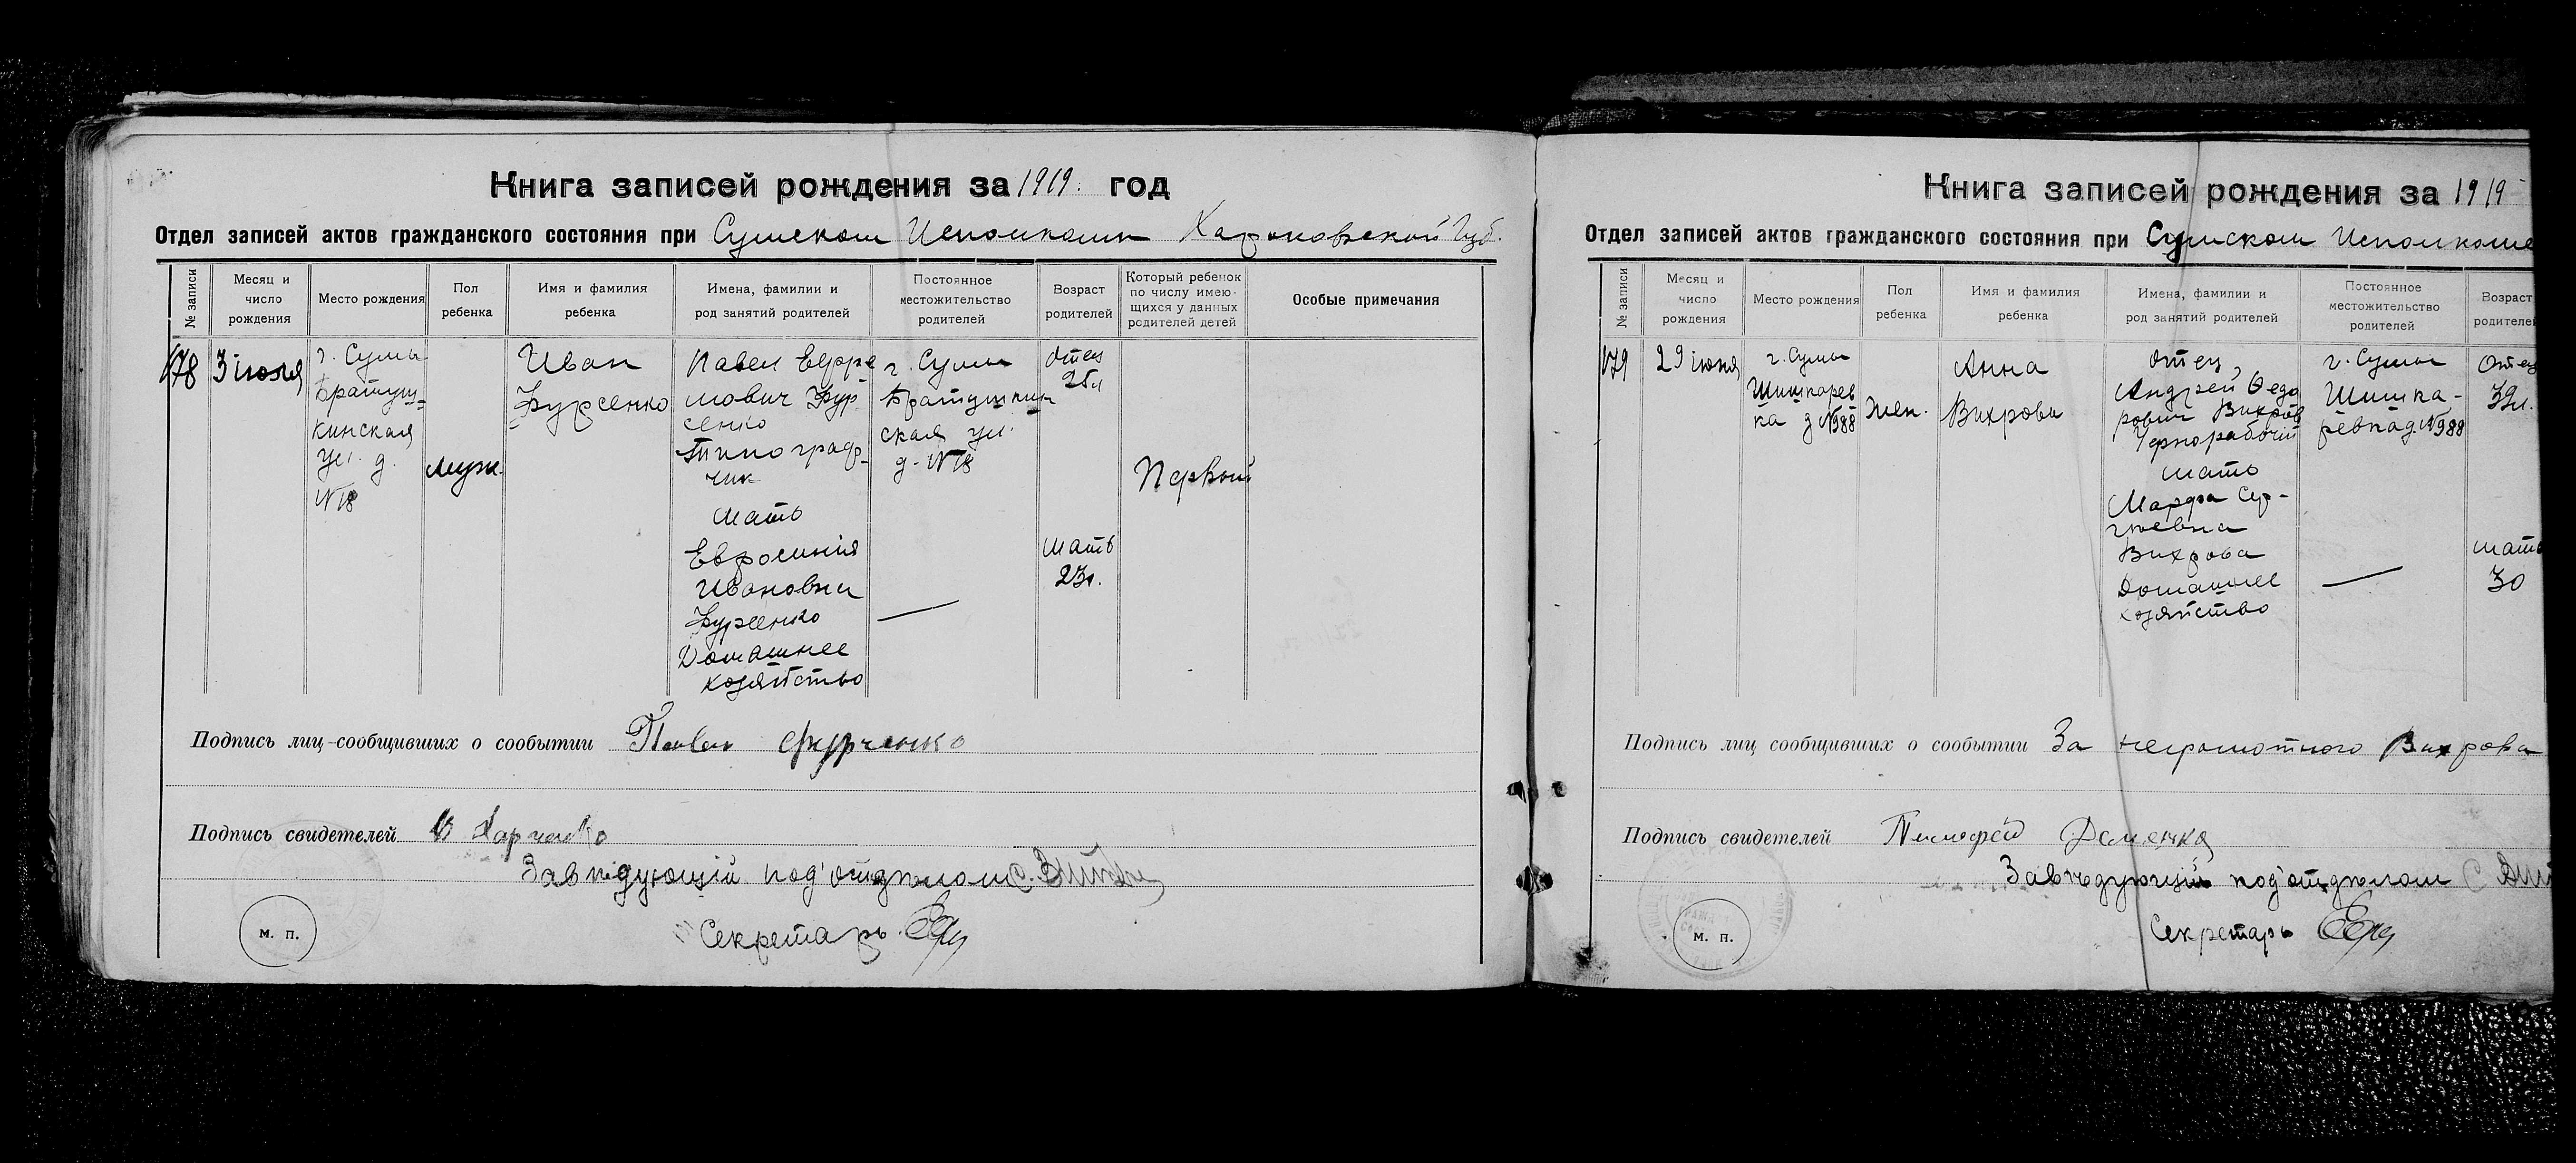 Книга записей рождения за 1919. год
Отдел записей актов гражданского состояния при Сумском Исполкоми Харьковской Губ.
№ записи
Месяц и
число
рождения
Место рождения
Пол
ребенка
Имя и фамилия
ребенка
Имена, фамилии и
род занятий родителей
Постоянное
местожительство
родителей
Возраст
родителей
Который ребенок
по числу имею-
щихся у данных
родителей детей
Особые примечания
178
3 июля
г. Сумы
Братуш-
кинская
ул. д.
№ 18
муж.
Иван
Фурсенко
Павел Ефре
мович Фур
сенко
Типограф-
чик
мать
Евросинія
Ивановна
Фурсенко
Домашнее
хозяйство
г. Сумы
Братушкин-
ская ул.
д. № 18
—
отец
25 л
мать
23 л.
Первый
Подпись лиц сообщивших о сообытии Павел
Подпись свидетелей Харченко
Завѣдующій под'отдѣлом С.
Секретарь
м. п.
Книга записей рождения за 1919
Отдел записей актов гражданского состояния при Сумском Исполкоме
№ записи
Месяц и
число
рождения
Место рождения
Пол
ребенка
Имя и фамилия
ребенка
Имена, фамилии и
род занятий родителей
Постоянное
местожительство
родителей
Возраст
родителей
179
29 июня
г. Сумы
Шишкарев
ка д № 988
жен.
Анна
Вихрова
отец
Андрей Ѳедо
рович Вихров
Чернорабочій
мать
Марфа Сер-
гѣевна
Вихрова
Домашнее
хозяйство
г. Сумы
Шишка-
ревка д. № 988
—
Отец
39 л.
мать
30
Подпись лиц сообщивших о сообытии За неграмотного Вихрова
Подпись свидетелей Тимофей
Завѣдующій под'отдѣлом С
Секретарь
м. п.